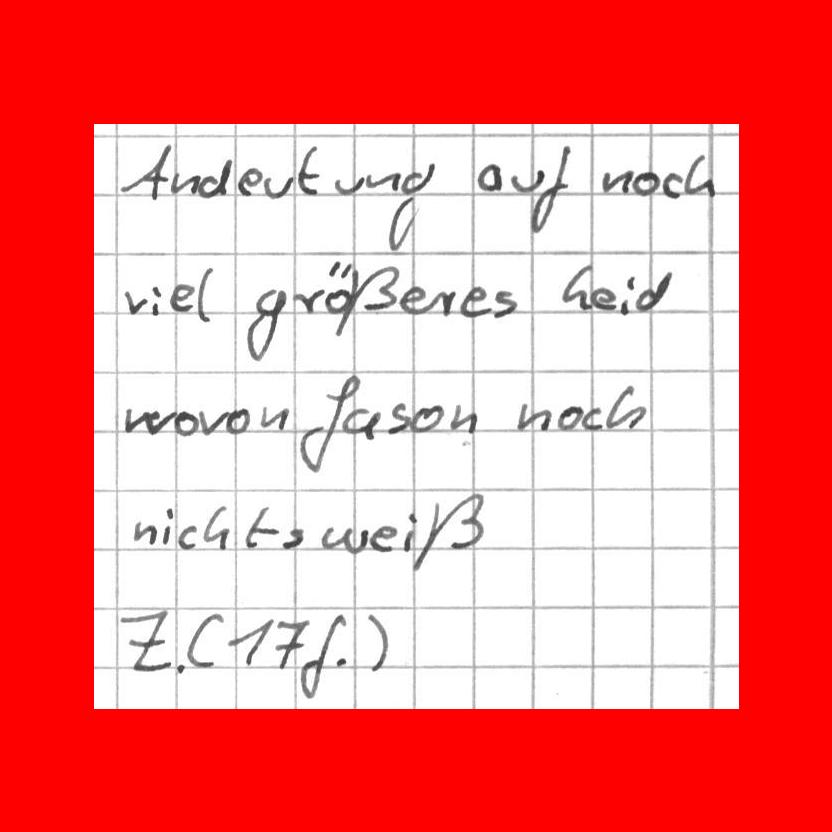 Andeutung auf noch
viel größeres heid
wovon Jason noch
nichts weiß
Z.(17f.)